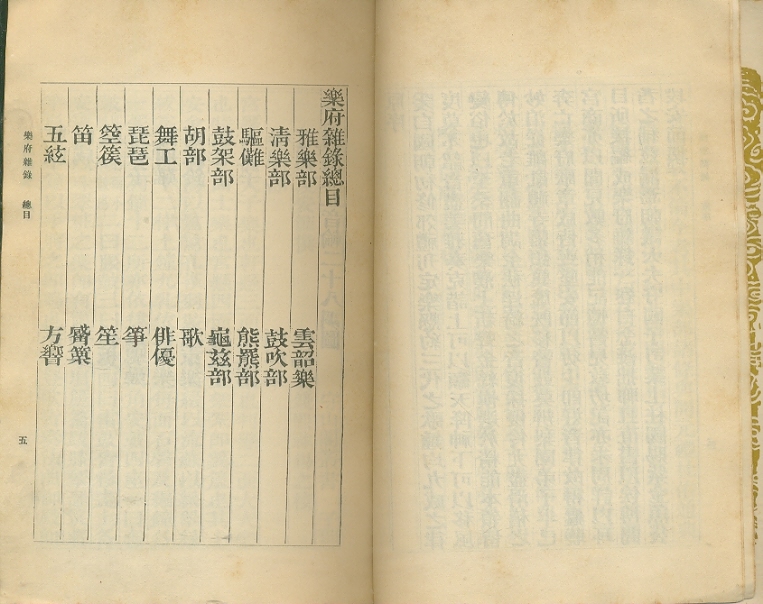 樂府雜錄總目
雅樂部 雲韶樂
清樂部 鼓吹部
驅儺 熊羆部
鼓架部 龜茲部
胡部 歌
舞工 俳優
琵琶 箏
箜篌 笙
笛 觱篥
五絃 方響
樂府雜錄 總目
五